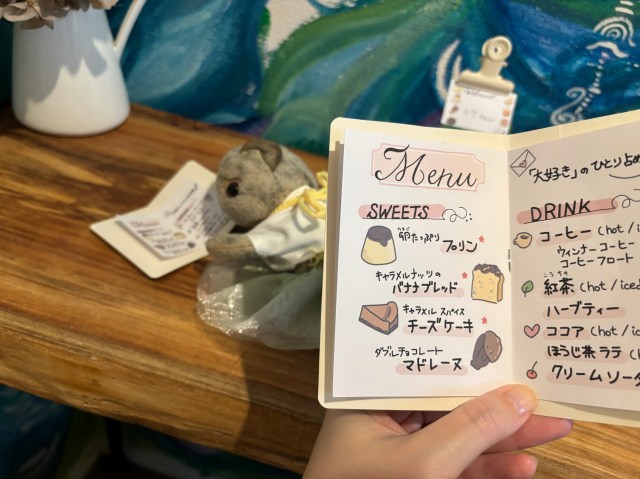 Menu
SWEETS
たまご
卵たっぷり プリン
キャラメルナッツの
バナナブレッド
キャラメル スパイス
チーズケーキ
ダブルチョコレート
マドレーヌ
「大好き」のひとり占め
DRINK
コーヒー (hot / i
ウィンナーコーヒー
コーヒーフロート
こうちゃ
紅茶 (hot / iced
ハーブティー
ココア (hot / ic
ほうじ茶ラテ (h
クリームソーダ